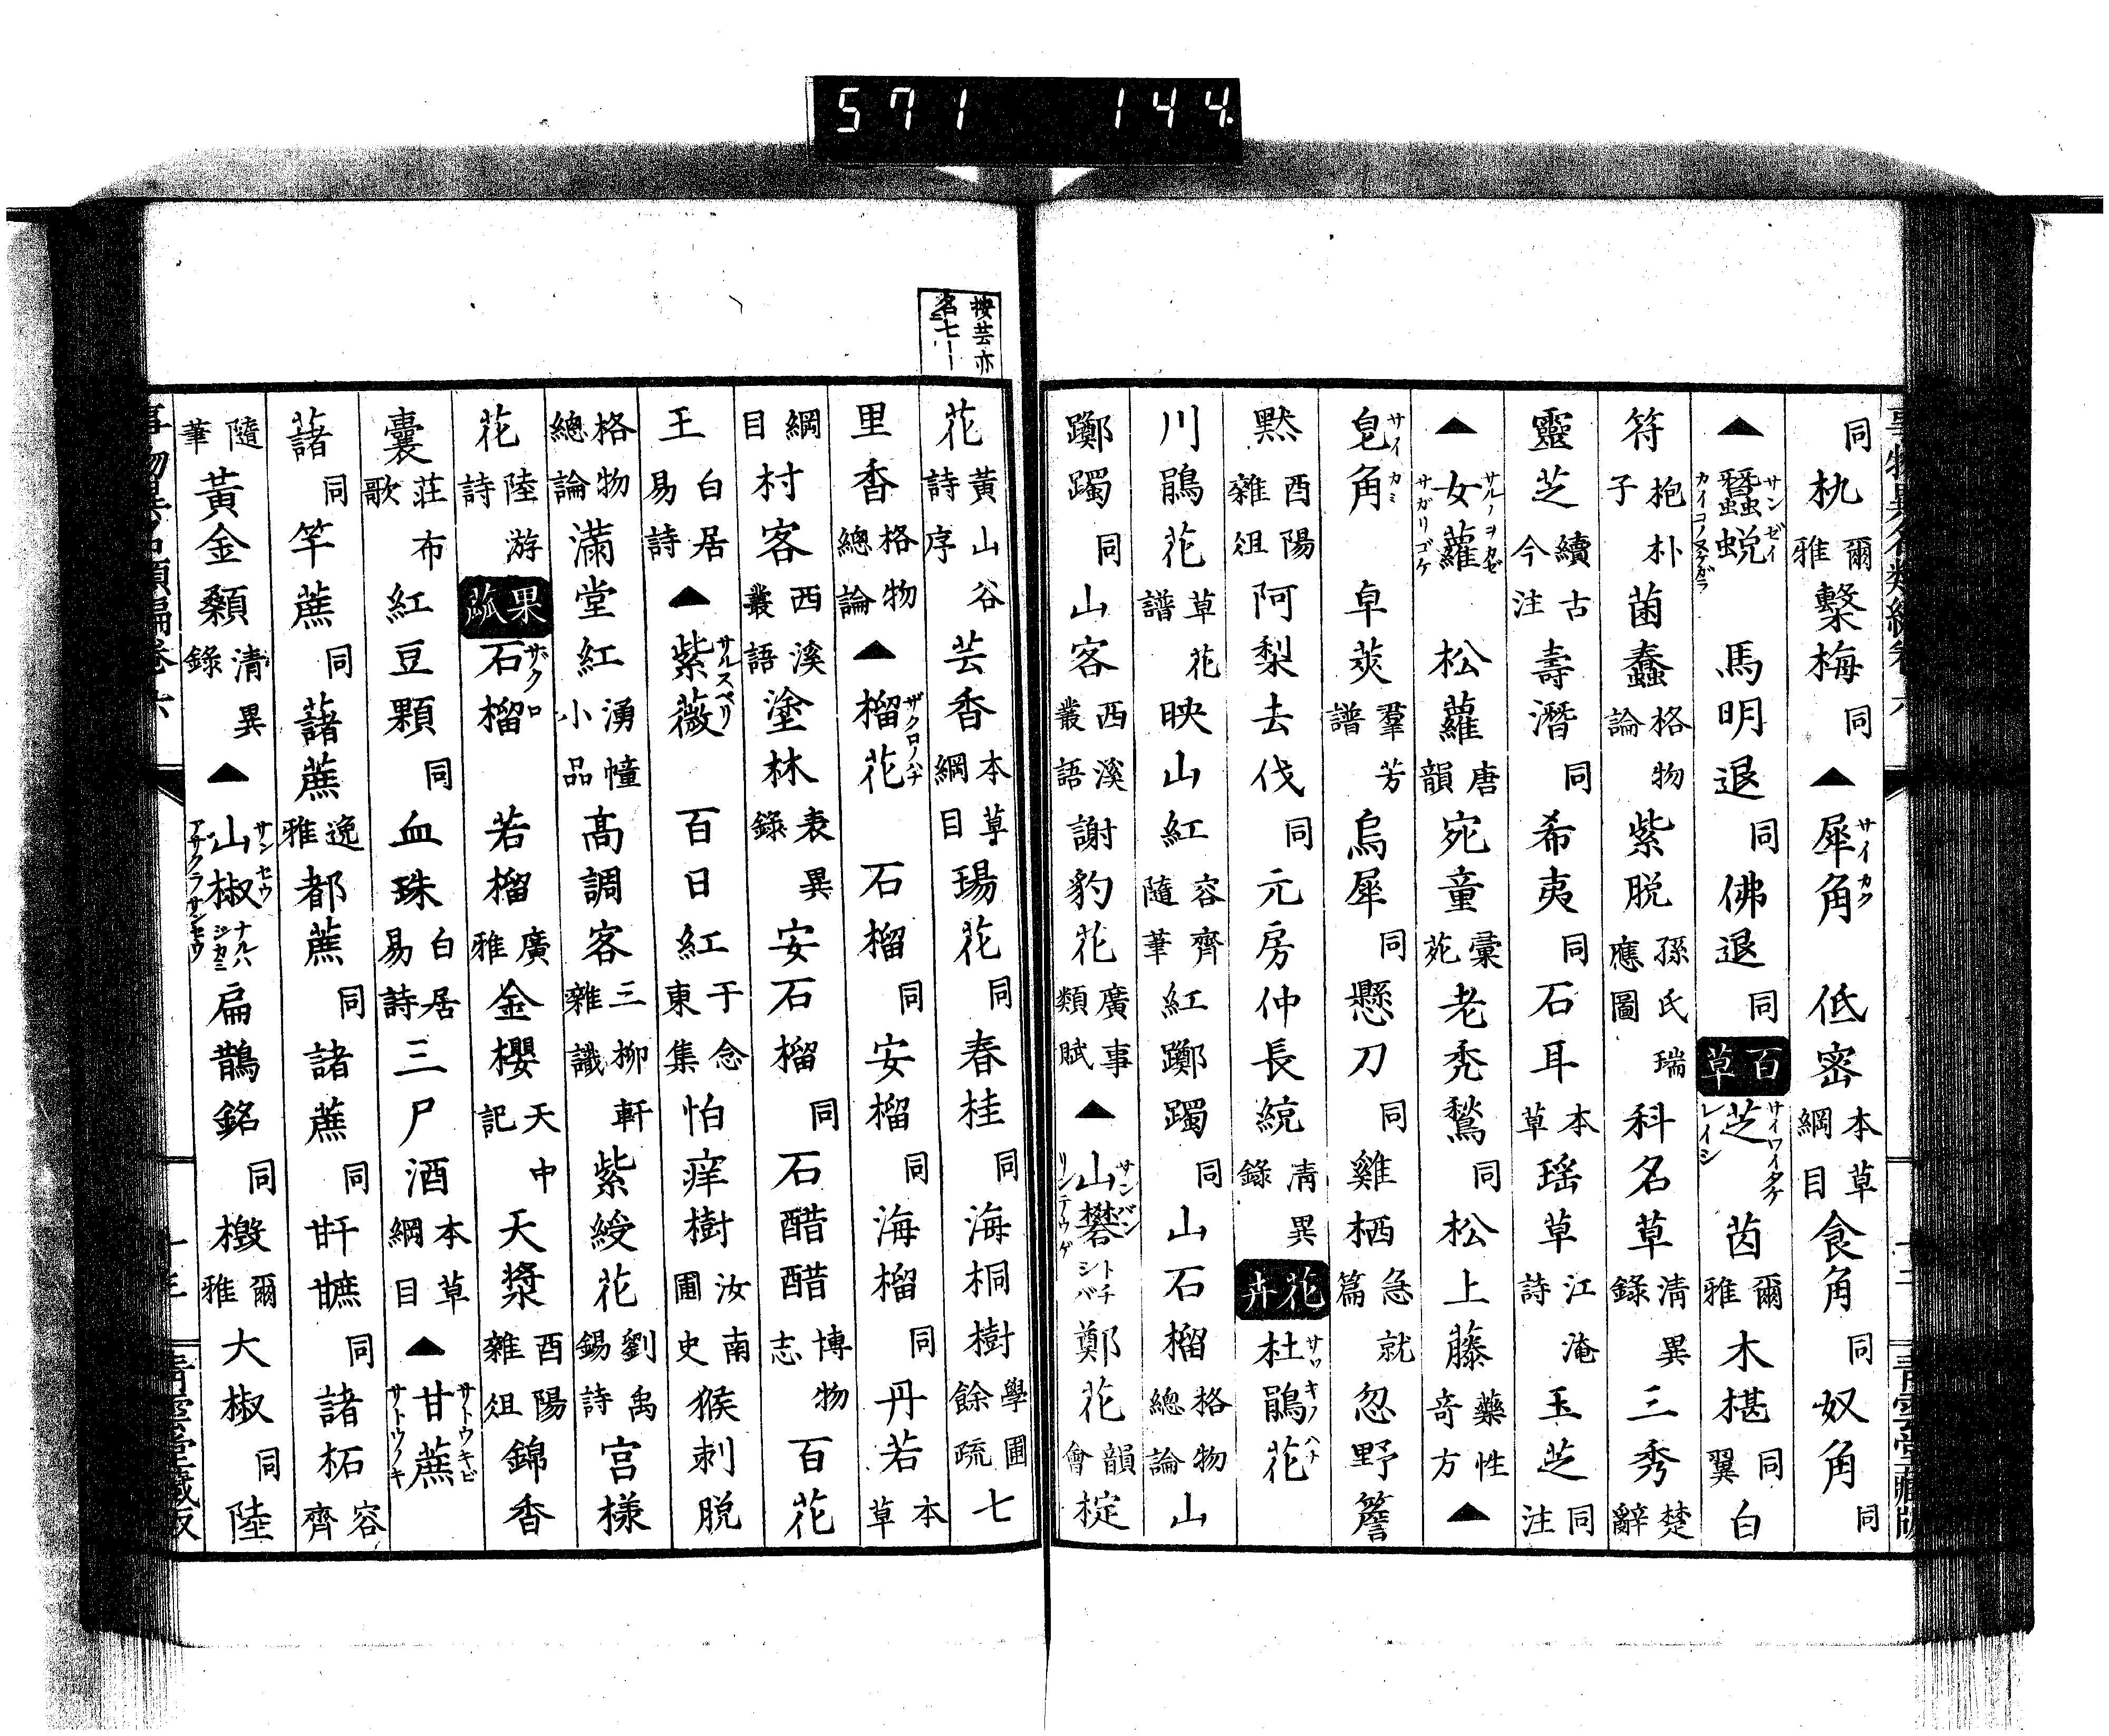 571 144
同朹爾雅繫梅同▲犀角サイカク低密本草綱目食角同奴角同
▲蠶蛻サンゼイカイコノヌケガラ馬明退同佛退同百草芝サイワイタケレイシ茵爾雅木椹同翼白
符抱朴子菌蠢格物論紫脱孫氏瑞應圖科名草清異錄三秀楚辭
靈芝續古今注壽潛同希夷同石耳本草瑶草江淹詩玉芝同注
▲女蘿サルノヲカゼサガリゴケ松蘿唐韻宛童彙苑老禿鶖同松上藤藥性奇方▲
皂角サイカミ皁莢羣芳譜烏犀同懸刀同雞栖急就篇忽野簷
黙酉陽雜俎阿梨去伐同元房仲長統清異錄花卉杜鵑花サツキノハナ
川鵑花草花譜映山紅容齊隨筆紅躑躅同山石榴格物總論山
躑躅同山客西溪叢語謝豹花廣事類賦▲山礬サンバンリンテウゲトチシバ鄭花韻會椗
按芸亦
名七ーー
花黃山谷詩序芸香本草綱目瑒花同春桂同海桐樹學圃餘疏七
里香格物總論▲榴花ザクロノハナ石榴同安榴同海榴同丹若本草
綱目村客西溪叢語塗林表異錄安石榴同石醋醋博物志百花
王白居易詩▲紫薇サルスベリ百日紅于念東集怕痒樹汝南圃史猴刺脱
格物總論滿堂紅湧幢小品高調客三柳軒雜識紫綬花劉禹錫詩宮樣
花陸游詩果蓏石榴ザクロ若榴廣雅金櫻天中記天漿酉陽雜俎錦香
囊莊布歌紅豆顆同血珠白居易詩三尸酒本草綱目▲甘蔗サトウキビサトウノキ
藷同竿蔗同藷蔗逸雅都蔗同諸蔗同䇞䗪同諸柘容齊
隨筆黃金顙清異錄▲山椒サンセウアサクラサンセウナルハジカミ扁鵲銘同檓爾雅大椒同陸